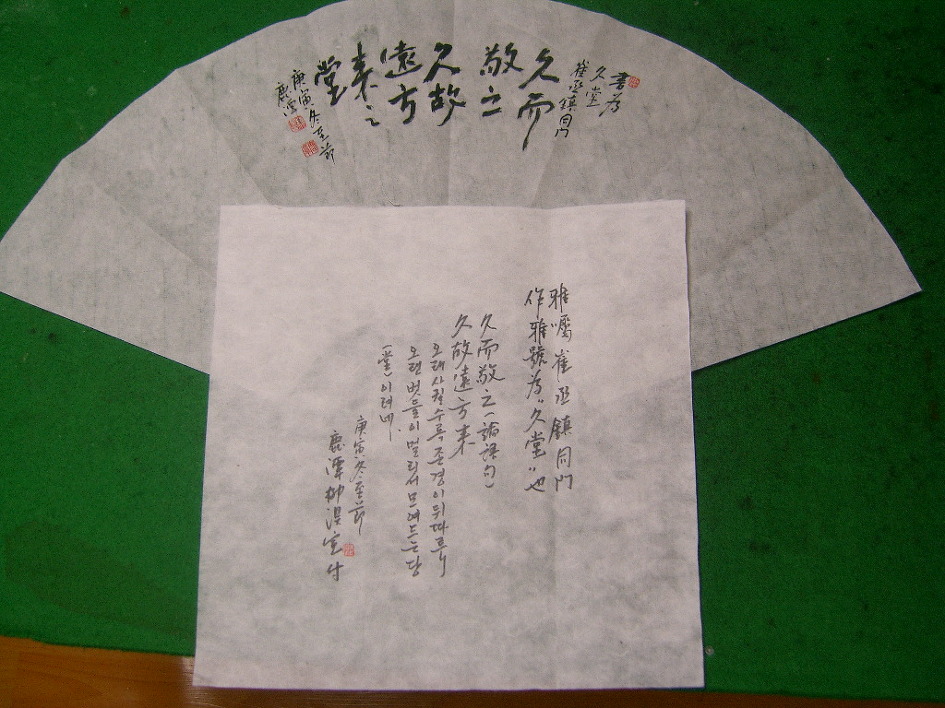 書為
久堂
崔丞鎮同門
久而
敬之
久故
遠方
來之
堂
庚寅冬至節
鹿潭
雅囑崔丞鎮同門
作雅號為"久堂"也
久而敬之(論語句)
久故遠方来
오래사귈수록존경이뒤따르니
오랜벗들이멀리서모여드는당
(堂)이려네.
庚寅冬至節
鹿潭柳淏宣付